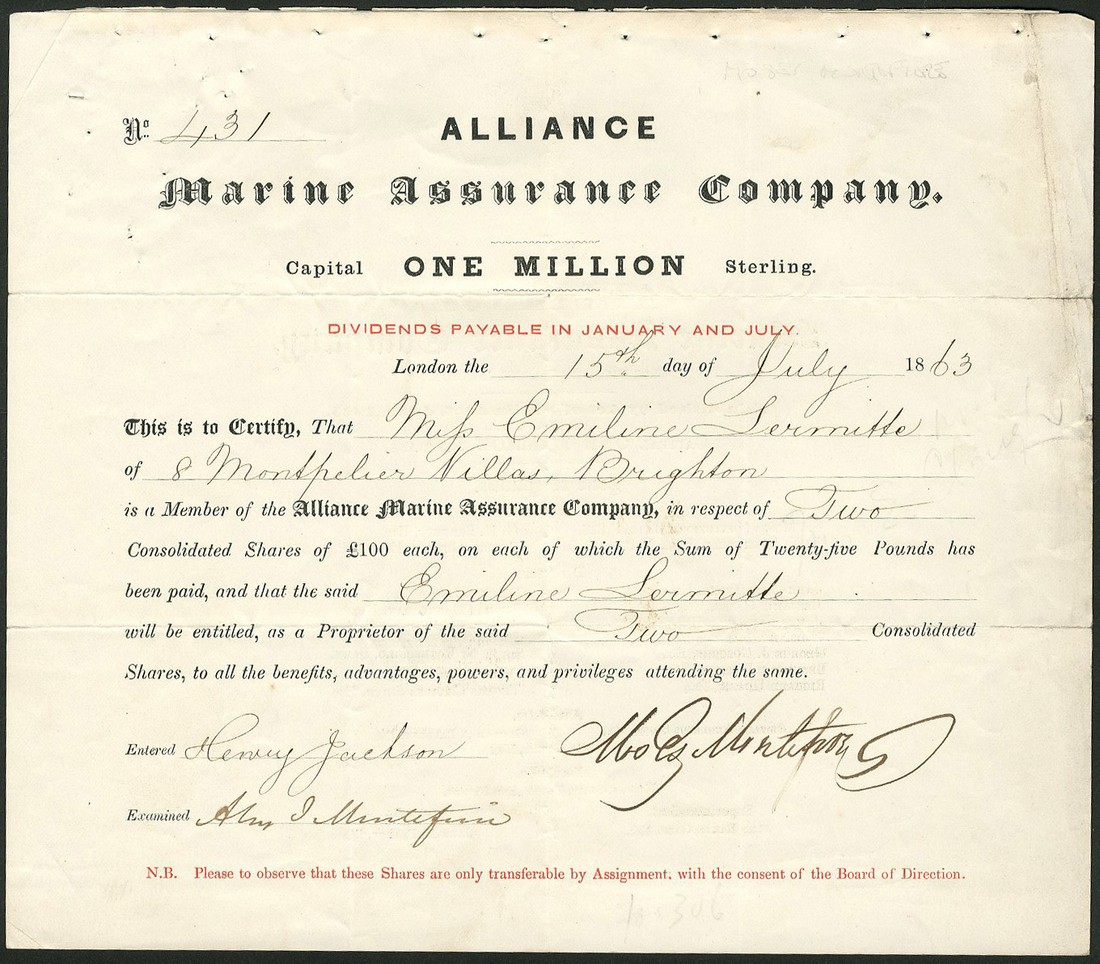 Nº 431
ALLIANCE
Marine Assurance Company.
Capital ONE MILLION Sterling.
DIVIDENDS PAYABLE IN JANUARY AND JULY.
London the 15th day of July 1863
This is to Certify, That Miss Emiline Lermitte
of 8 Montpelier Villas, Brighton
is a Member of the Alliance Marine Assurance Company, in respect of Two
Consolidated Shares of £100 each, on each of which the Sum of Twenty-five Pounds has
been paid, and that the said Emiline Lermitte
will be entitled, as a Proprietor of the said Two Consolidated
Shares, to all the benefits, advantages, powers, and privileges attending the same.
Entered Henry Jackson
Moses Montefiore
Examined Montefiore
N.B. Please to observe that these Shares are only transferable by Assignment, with the consent of the Board of Direction.